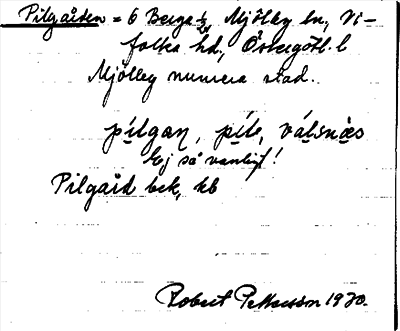 Pilgården = 6 Berga ½, Mjölby ln, Vi-
folka hd, Östergötl. l
Mjölby numera stad.
pilgan, pile, välsnäs
Ej så vanligt!
Pilgård bek, kb
Robert Pettersson 1920.